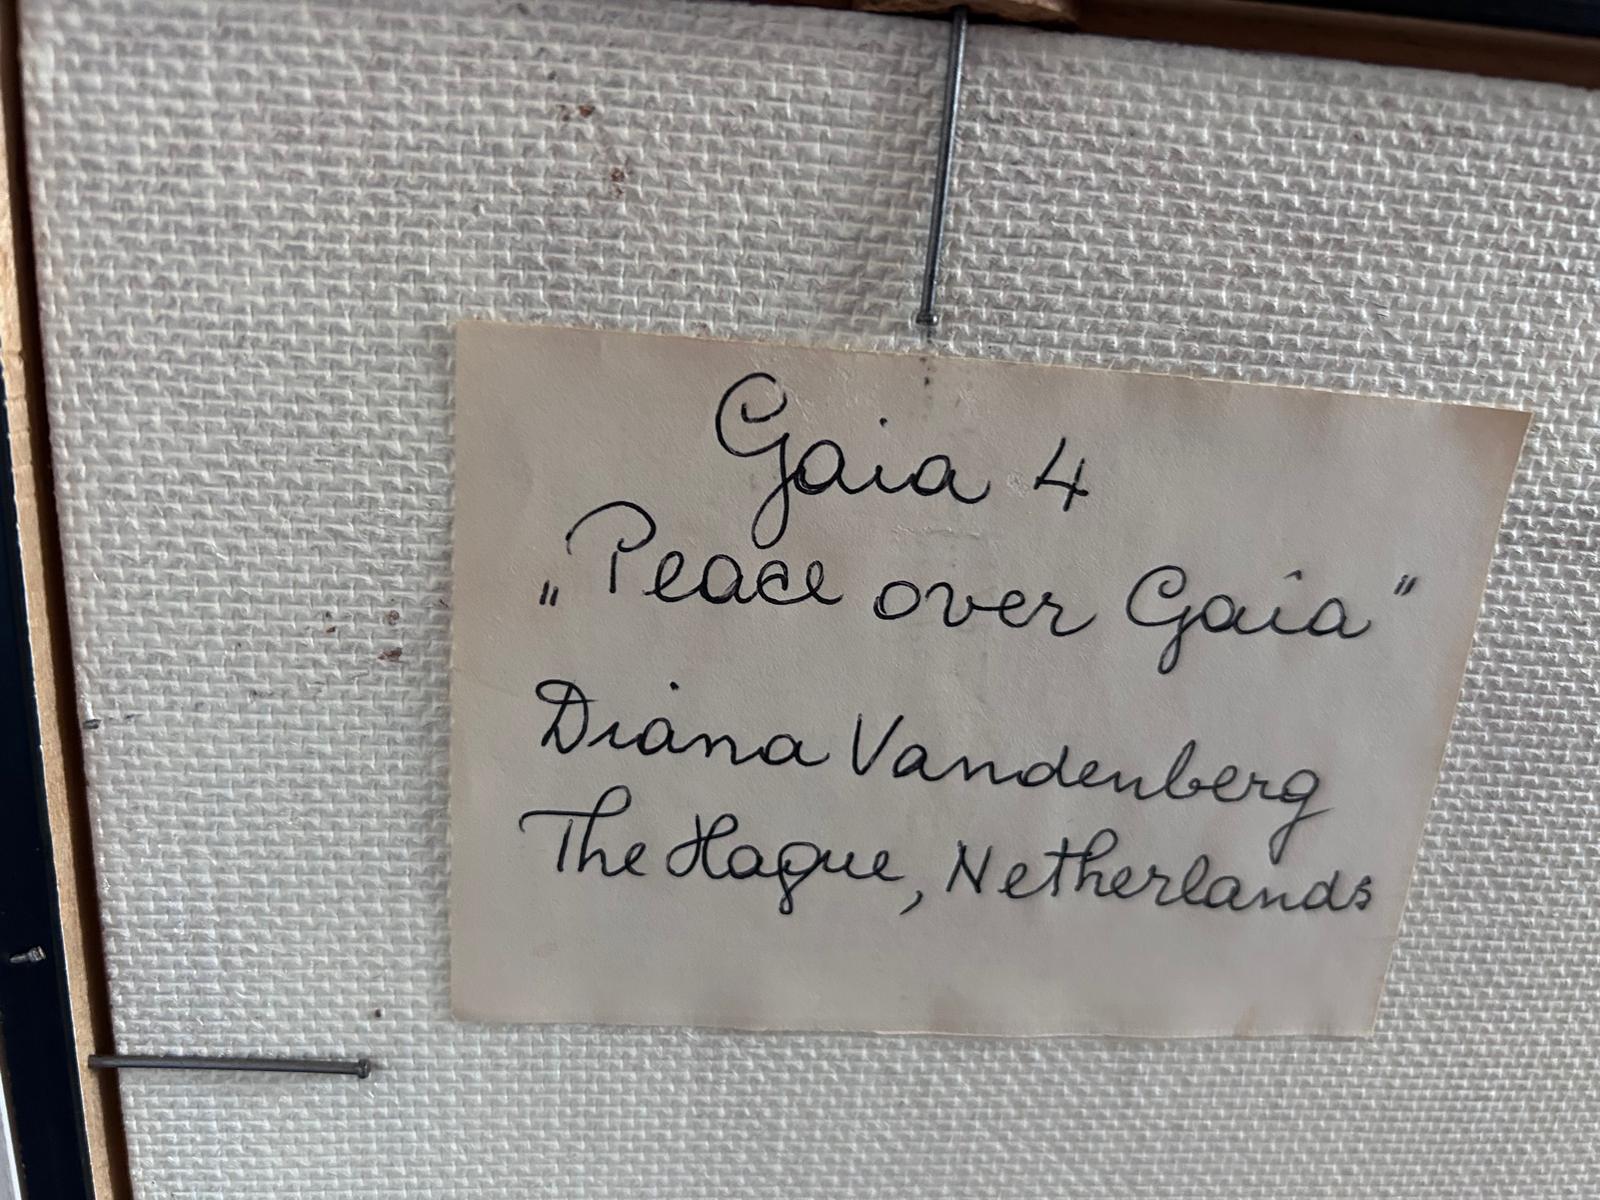 Gaia 4
„Peace over Gaia"
Diana Vandenberg
The Hague, Netherlands